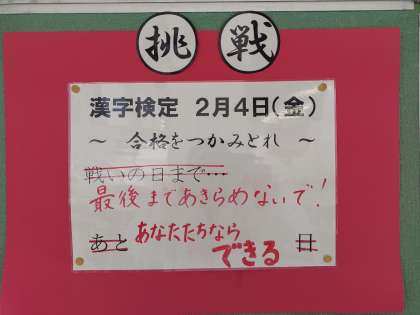 挑戦
漢字検定 2月4日(金)
～ 合格をつかみとれ ～
戦いの日まで…
最後まであきらめないで!
あと あなたたちなら 日
できる